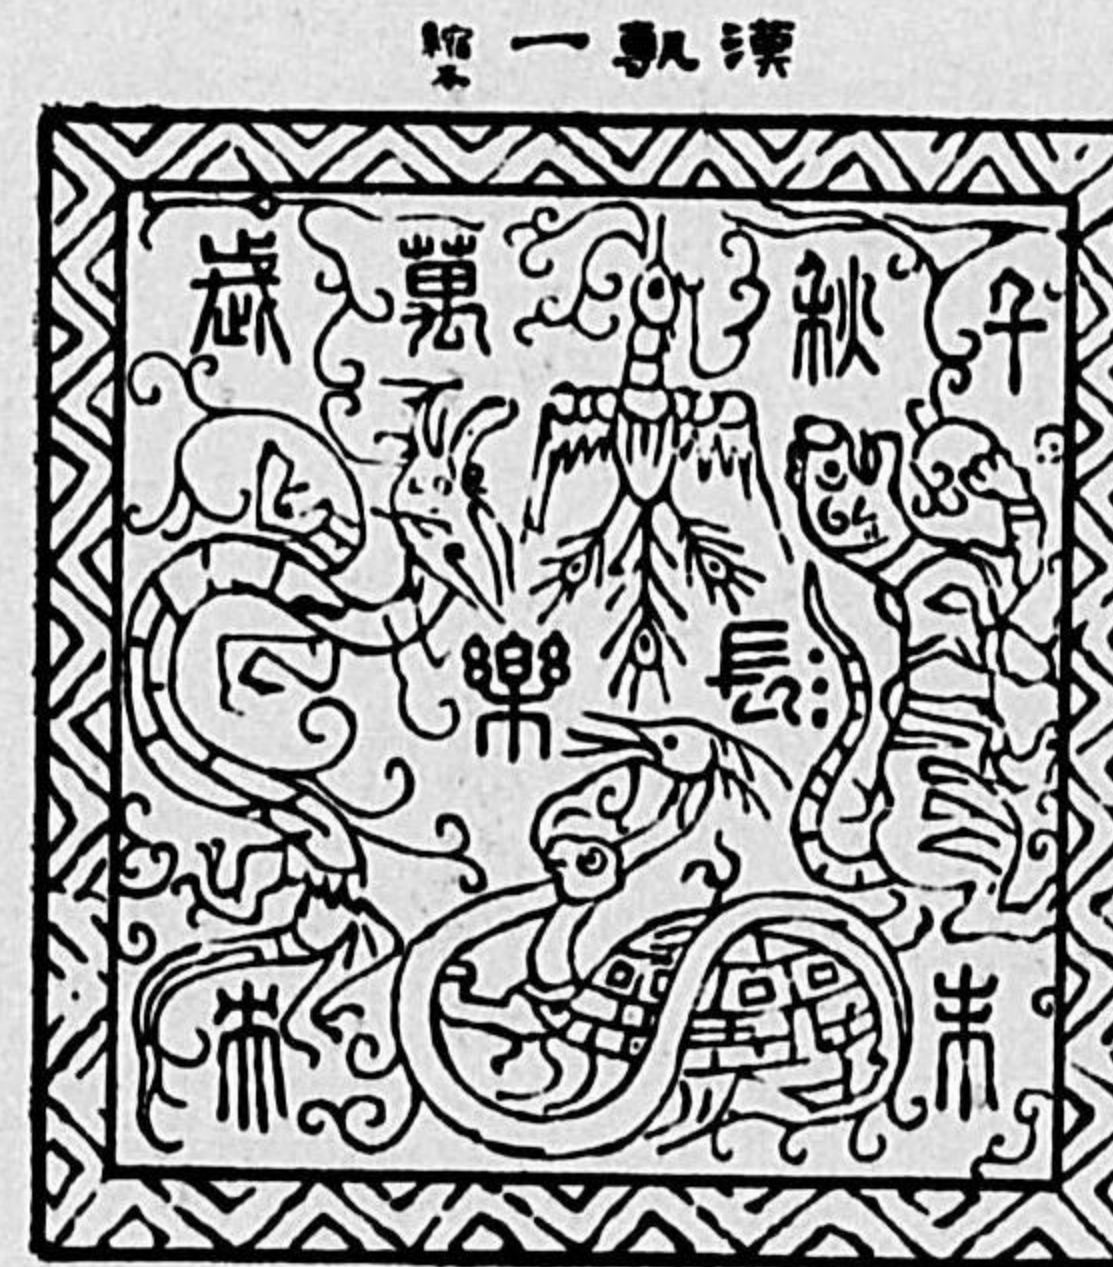 漢甎一縮本
千秋萬歲
長樂
未央